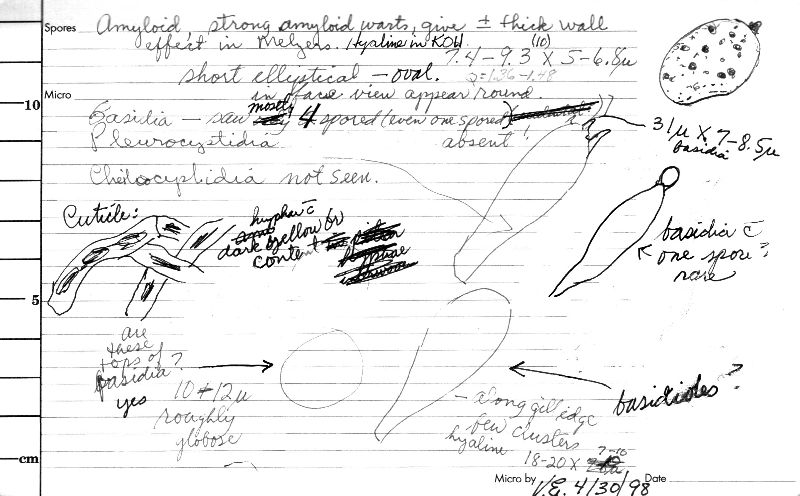 Spores Amyloid, strong amyloid warts, give ± thick wall
effect in Melzers. Hyaline in KOH (10)
7.4-9.3 x 5-6.8µ
short elliptical - oval. Q=1.36-1.48
in face view appear round.
10
Micro
Basidia - saw mostly 4 spored (even one spored)
Pleurocystidia absent!
31µ x 7-8.5µ
basidia
Cheilocystidia not seen.
Cuticle:
hyphae c̄
dark yellow br
content
basidia c̄
one spore?
rare
5
are
these
tops of
basidia?
yes
10 + 12µ
roughly
globose
basidioles?
- along gill edge
few clusters
hyaline
18-20 x 7-10
cm
Micro by V.E. 4/30/98 Date